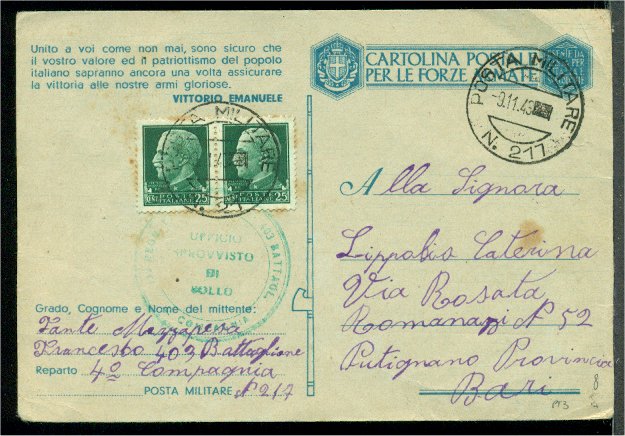 Unito a voi come non mai, sono sicuro che
il vostro valore ed il patriottismo del popolo
italiano sapranno ancora una volta assicurare
la vittoria alle nostre armi gloriose.
VITTORIO EMANUELE
CARTOLINA POSTALE
PER LE FORZE ARMATE
POSTA MILITARE
-9.11.43
N. 217
POSTA MILITARE
POSTE ITALIANE
CENT 25
POSTE ITALIANE
25
403 BATTAGL.
UFFICIO
SPROVVISTO
DI
BOLLO
COMPAGNIA
Alla Signora
Lippolis Caterina
Via Rosata
Romanazzi N 52
Putignano Provincia
Bari
Grado, Cognome e Nome del mittente:
Fante Mezzapesa
Francesco 403 Battaglione
Reparto 4ª Compagnia
POSTA MILITARE N° 217
8